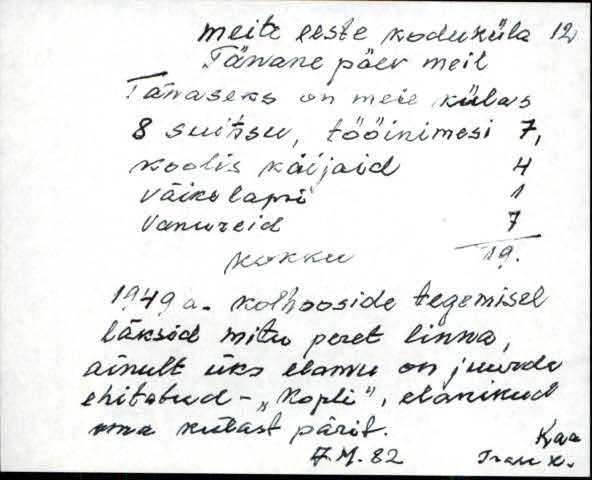 meite eeste koduküla 12
Tänane päev meil
Tänaseks on meie külas
8 suitsu, tööinimesi 7,
koolis käijaid 4
väike lapsi 1
Vanureid 7
kokku 19.
1949 a. kolhooside tegemisel
läksid mitu peret linna,
ainult üks elamu on juurde
ehitatud - „Kopli", elanikud
oma külast pärit.
7.M.82 Kaa